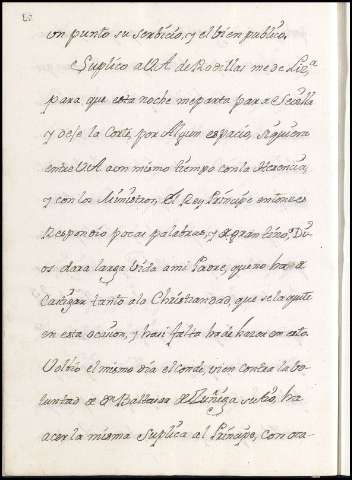 en punto su serbicio, y el bien publico,
Suplico a V.A. de Rodillas me de Liz.ª
para que esta noche me parta para Sevilla
y deje la Corte, por Algun espacio, siquiera
entre V.A. a un mismo tiempo con la Herencia,
y con los Ministros, El Rey Principe entonces
Respondio pocas palabras, y de gran tino, Di
os dara larga vida a mi Padre, que no ha de
Castigar tanto a la Christiandad, que se la quite
en esta ocasion, y harà falta ha de hacer en esto
Volbio el mismo dia el Conde, bien contra la bo
luntad de Dn Baltasar de Zuñiga su tio, ha
acer la misma suplica al Principe, con ora-